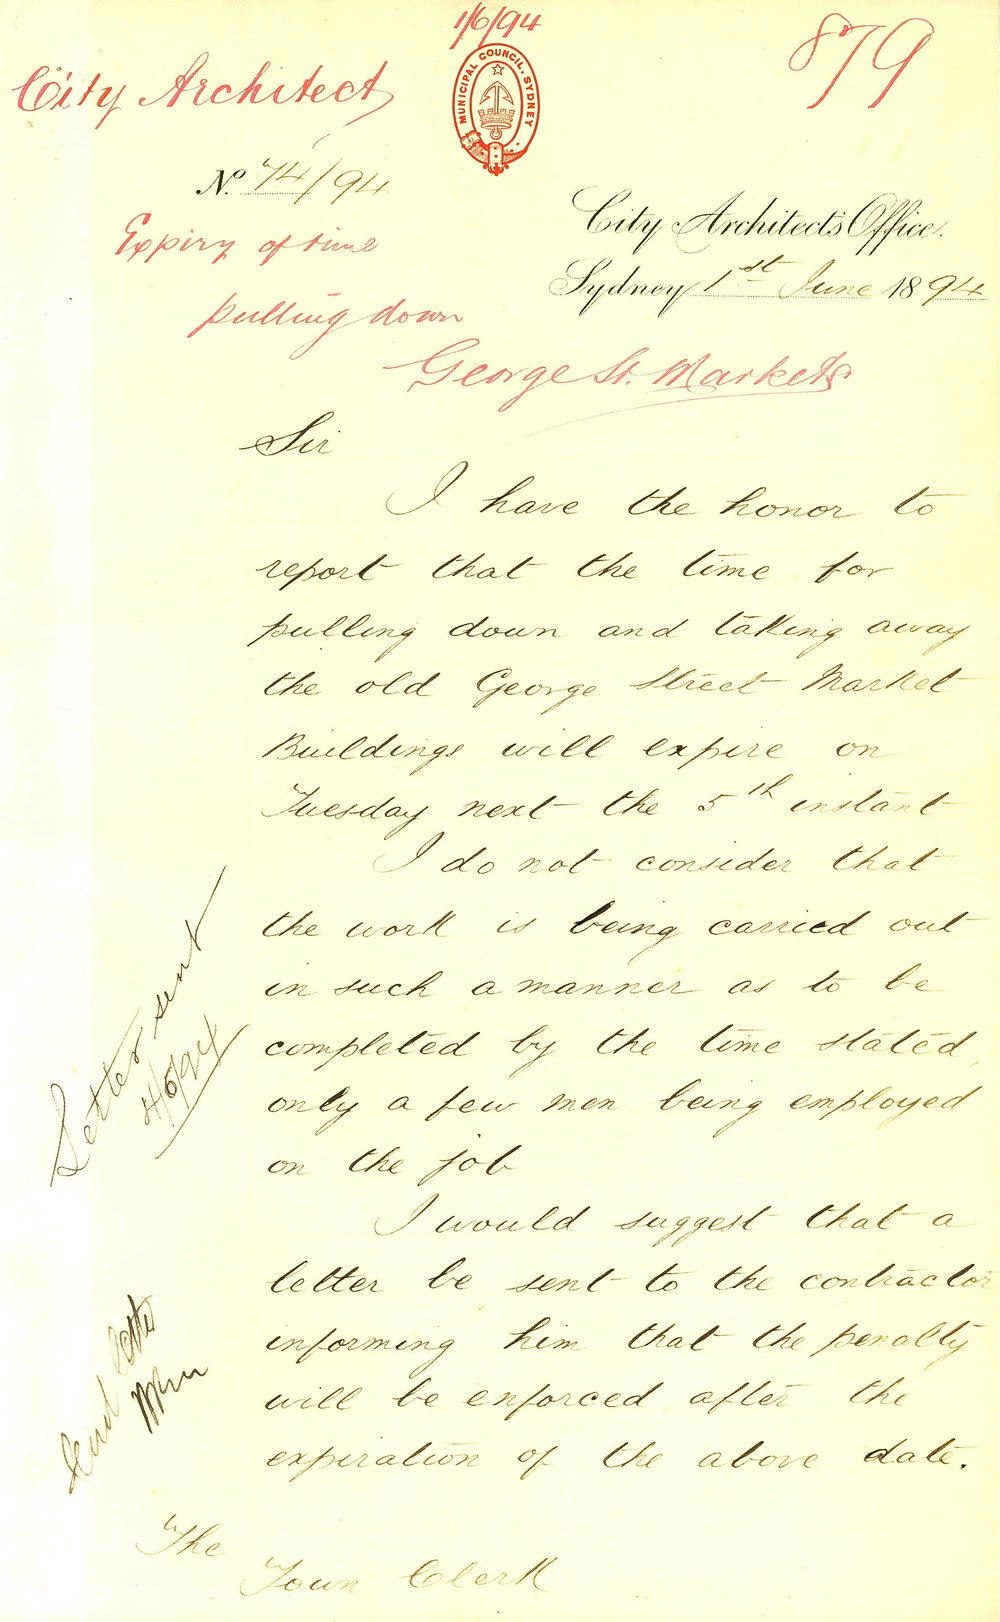 1/6/94
879
City Architect
MUNICIPAL COUNCIL. SYDNEY
No. 74/94
City Architect's Office.
Expiry of time
Sydney 1st June 1894
pulling down
George St. Markets
Sir
I have the honor to
report that the time for
pulling down and taking away
the old George Street Market
Buildings will expire on
Tuesday next the 5th instant
I do not consider that
the work is being carried out
in such a manner as to be
completed by the time stated,
only a few men being employed
on the job
I would suggest that a
letter be sent to the contractor
informing him that the penalty
will be enforced after the
expiration of the above date.
Letter sent
4/6/94
Send letter
The
Town Clerk